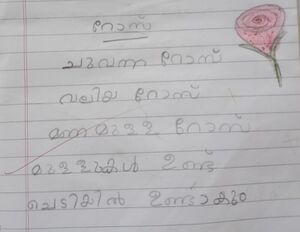 റോസ്
ചുവന്ന റോസ്
വലിയ റോസ്
മണമുള്ള റോസ്
മുള്ളുകൾ ഉണ്ട്
ചെടിയിൽ ഉണ്ടാകും